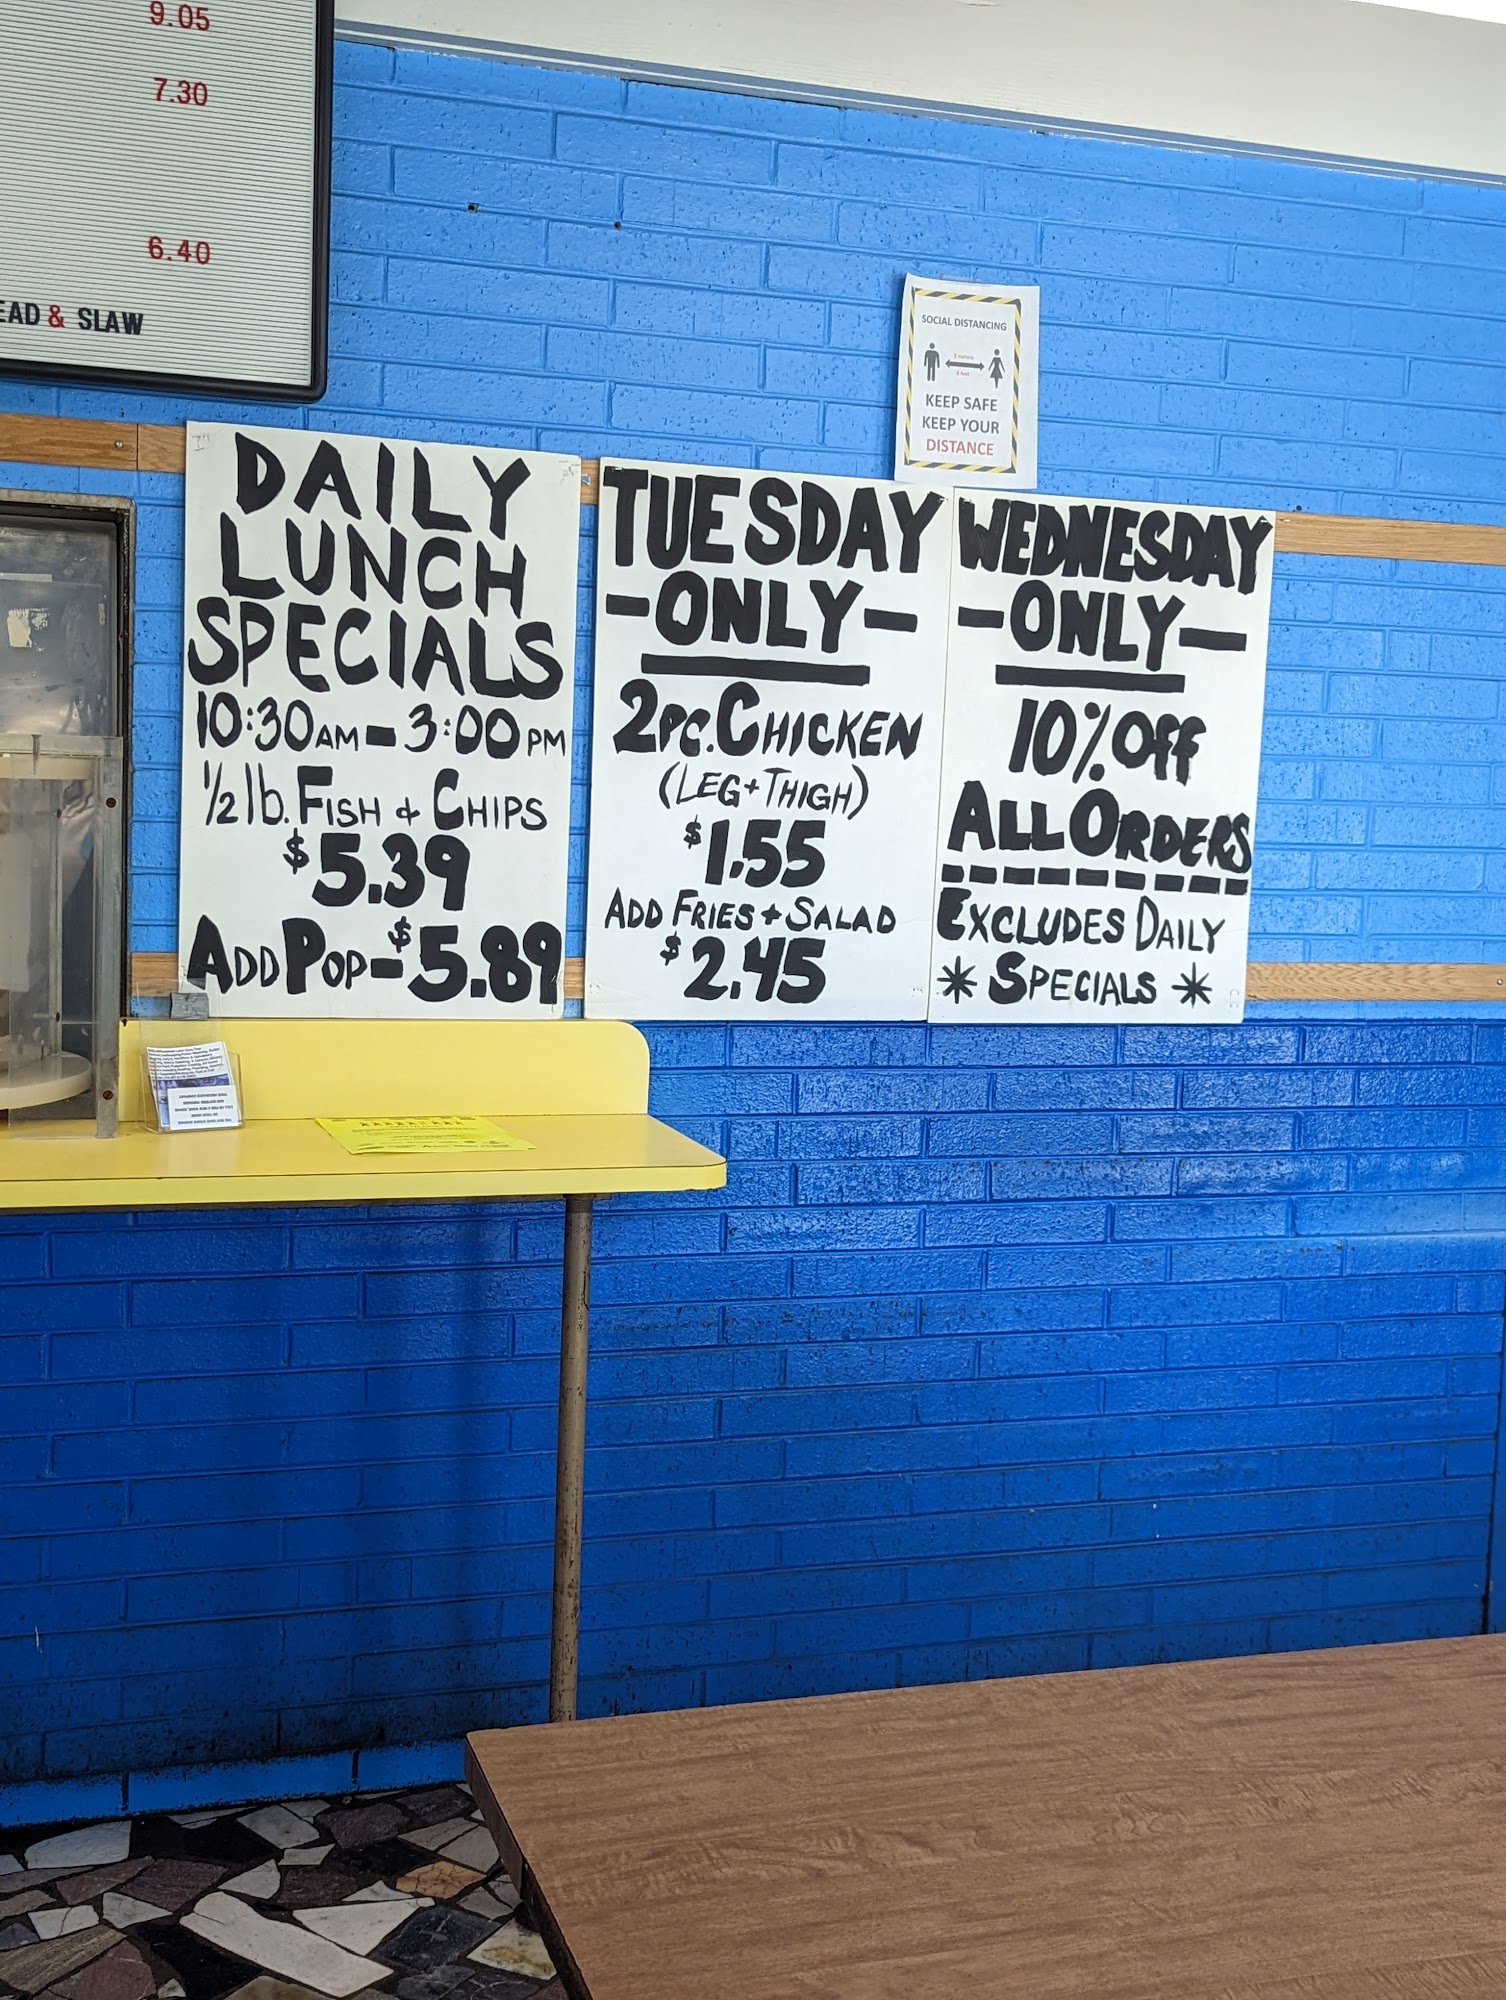 9.05
7.30
6.40
EAD & SLAW
SOCIAL DISTANCING
2 meters
6 feet
KEEP SAFE
KEEP YOUR
DISTANCE
DAILY
LUNCH
SPECIALS
10:30AM-3:00PM
1/2 lb. FISH & CHIPS
$5.39
ADD POP-$5.89
TUESDAY
-ONLY-
2PC. CHICKEN
(LEG+THIGH)
$1.55
ADD FRIES + SALAD
$2.45
WEDNESDAY
-ONLY-
10% OFF
ALL ORDERS
EXCLUDES DAILY
* SPECIALS *